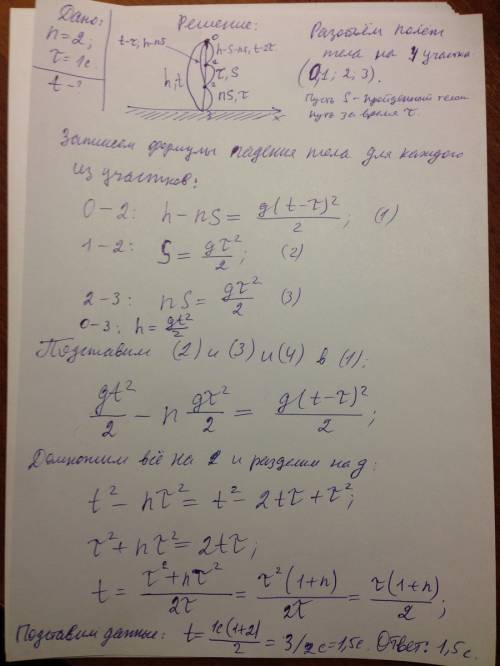 Дано:
n=2;
τ=1с.
t-?
Решение:
t-τ, h-nS
0
h-S-nS, t-2τ
1
h,t
τ,S
2
nS,τ
3
x
Разобьём полет
тела на 4 участка
(0,1; 2; 3).
Пусть S - пройденный телом
путь за время τ.
Запишем формулы падения тела для каждого
из участков:
0-2: h-nS = g(t-τ)²/2; (1)
1-2: S = gτ²/2; (2)
2-3: nS = gτ²/2 (3)
0-3: h = gt²/2
Подставим (2) и (3) и (4) в (1):
gt²/2 - n gτ²/2 = g(t-τ)²/2;
Домножим всё на 2 и разделим на g:
t² - nτ² = t² - 2tτ + τ²;
τ² + nτ² = 2tτ;
t = τ²+nτ²/2τ = τ²(1+n)/2τ = τ(1+n)/2;
Подставим данные: t = 1с(1+2)/2 = 3/2с = 1,5с. Ответ: 1,5с.